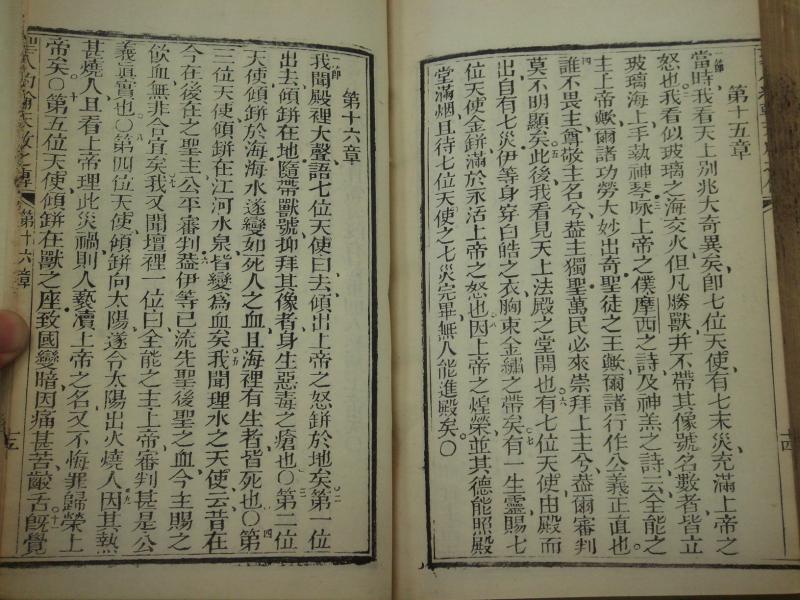 第十五章
一節
當時我看天上別兆大奇異矣卽七位天使有七末災充滿上帝之
怒也我看似玻璃之海交火但凡勝獸并不帶其像號名數者皆立
玻璃海上手執神琴咏上帝之僕摩西之詩及神羔之詩云全能之
主上帝歟爾諸功勞大妙出奇聖徒之王歟爾諸行作公義正直也
誰不畏主尊敬主名兮葢主獨聖萬民必來崇拜上主兮葢爾審判
莫不明顯矣此後我看見天上法殿之堂開也有七位天使由殿而
出自有七災伊等身穿白皓之衣胸束金繡之帶矣有一生靈賜七
位天使金缾滿於永活上帝之怒也因上帝之煌榮並其德能照殿
堂滿烟且待七位天使之七災完畢無人能進殿矣〇
十四
第十六章
一節
我聞殿裡大聲語七位天使曰去傾出上帝之怒缾於地矣第一位
出去傾缾在地隨帶獸號抑拜其像者身生惡毒之瘡也〇第二位
天使傾缾於海海水遂變如死人之血且海裡有生者皆死也〇第
三位天使傾缾在江河水泉皆變爲血矣我聞理水之天使云昔在
今在後在之聖主公平審判葢伊等已流先聖後聖之血今主賜之
飲血無非合宜矣我又聞壇裡一位曰全能之主上帝審判甚是公
義眞實也〇第四位天使傾缾向太陽遂令太陽出火燒人因其熱
甚燒人且看上帝理此災禍則人褻瀆上帝之名又不悔罪歸榮上
帝矣〇第五位天使傾缾在獸之座致國變暗因痛甚苦齩舌旣覺
第十六章
十五